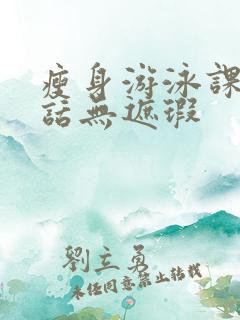 瘦身游泳課
話無遮瑕
劉立勇
未經同意禁止轉載